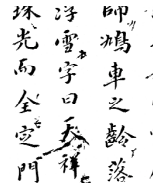 師鳩車之齡落
浮雪字曰天祥
珠光而全定門